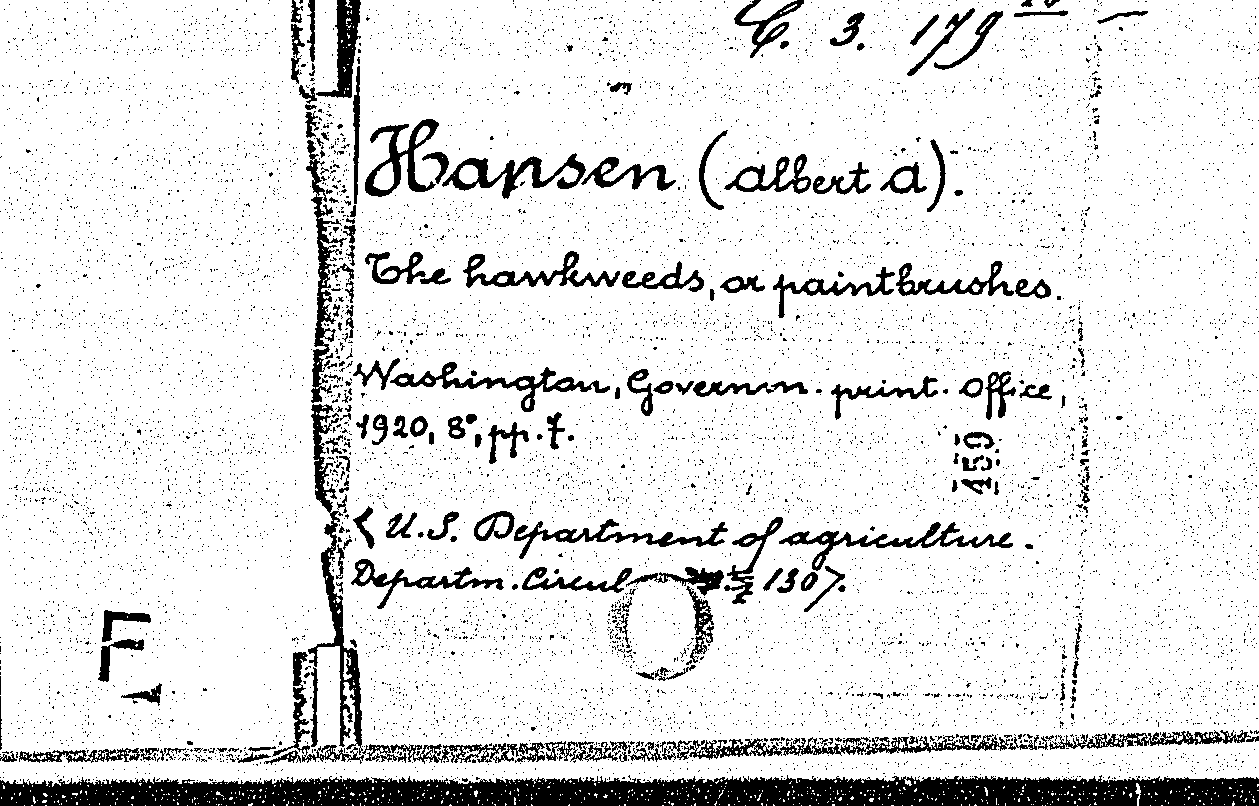 C. 3. 179
Hansen (Albert A).
The hawkweeds, or paintbrushes.
Washington, Governm. print. Office,
1920, 8°, pp. 7.
459
< U.S. Department of agriculture.
Departm. Circul 130 7.
F